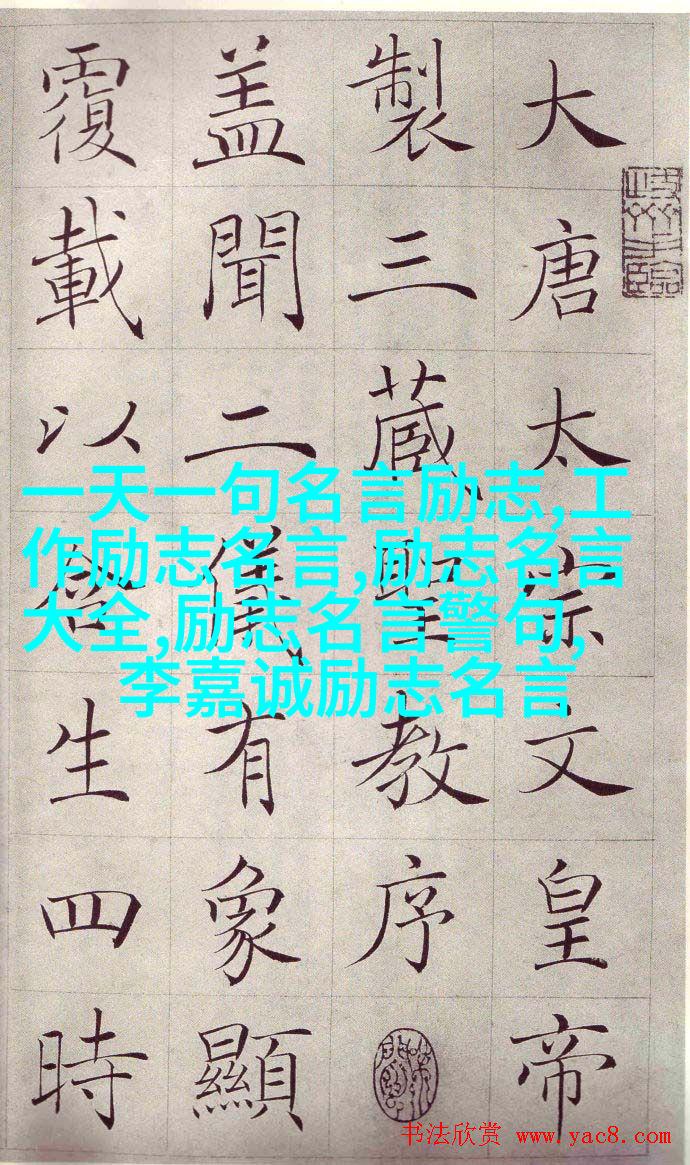 大唐太宗文皇帝
製三藏聖教序
盖聞二儀有象顯
覆載以含生四時
一天一句名言励志,工
作励志名言,励志名言
大全,励志名言警句,
李嘉诚励志名言
书法欣赏 www.yac8.com